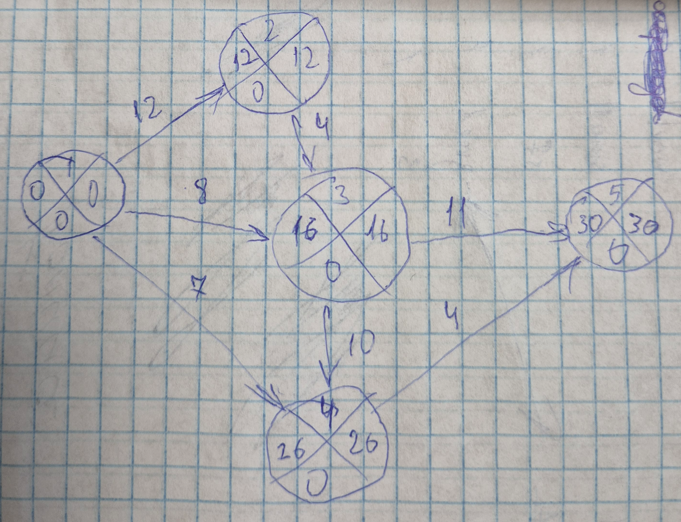 2
12 12
0
12
4
1
0 0
0
8
3
16 16
0
11
5
30 30
0
7
10
4
4
26 26
0